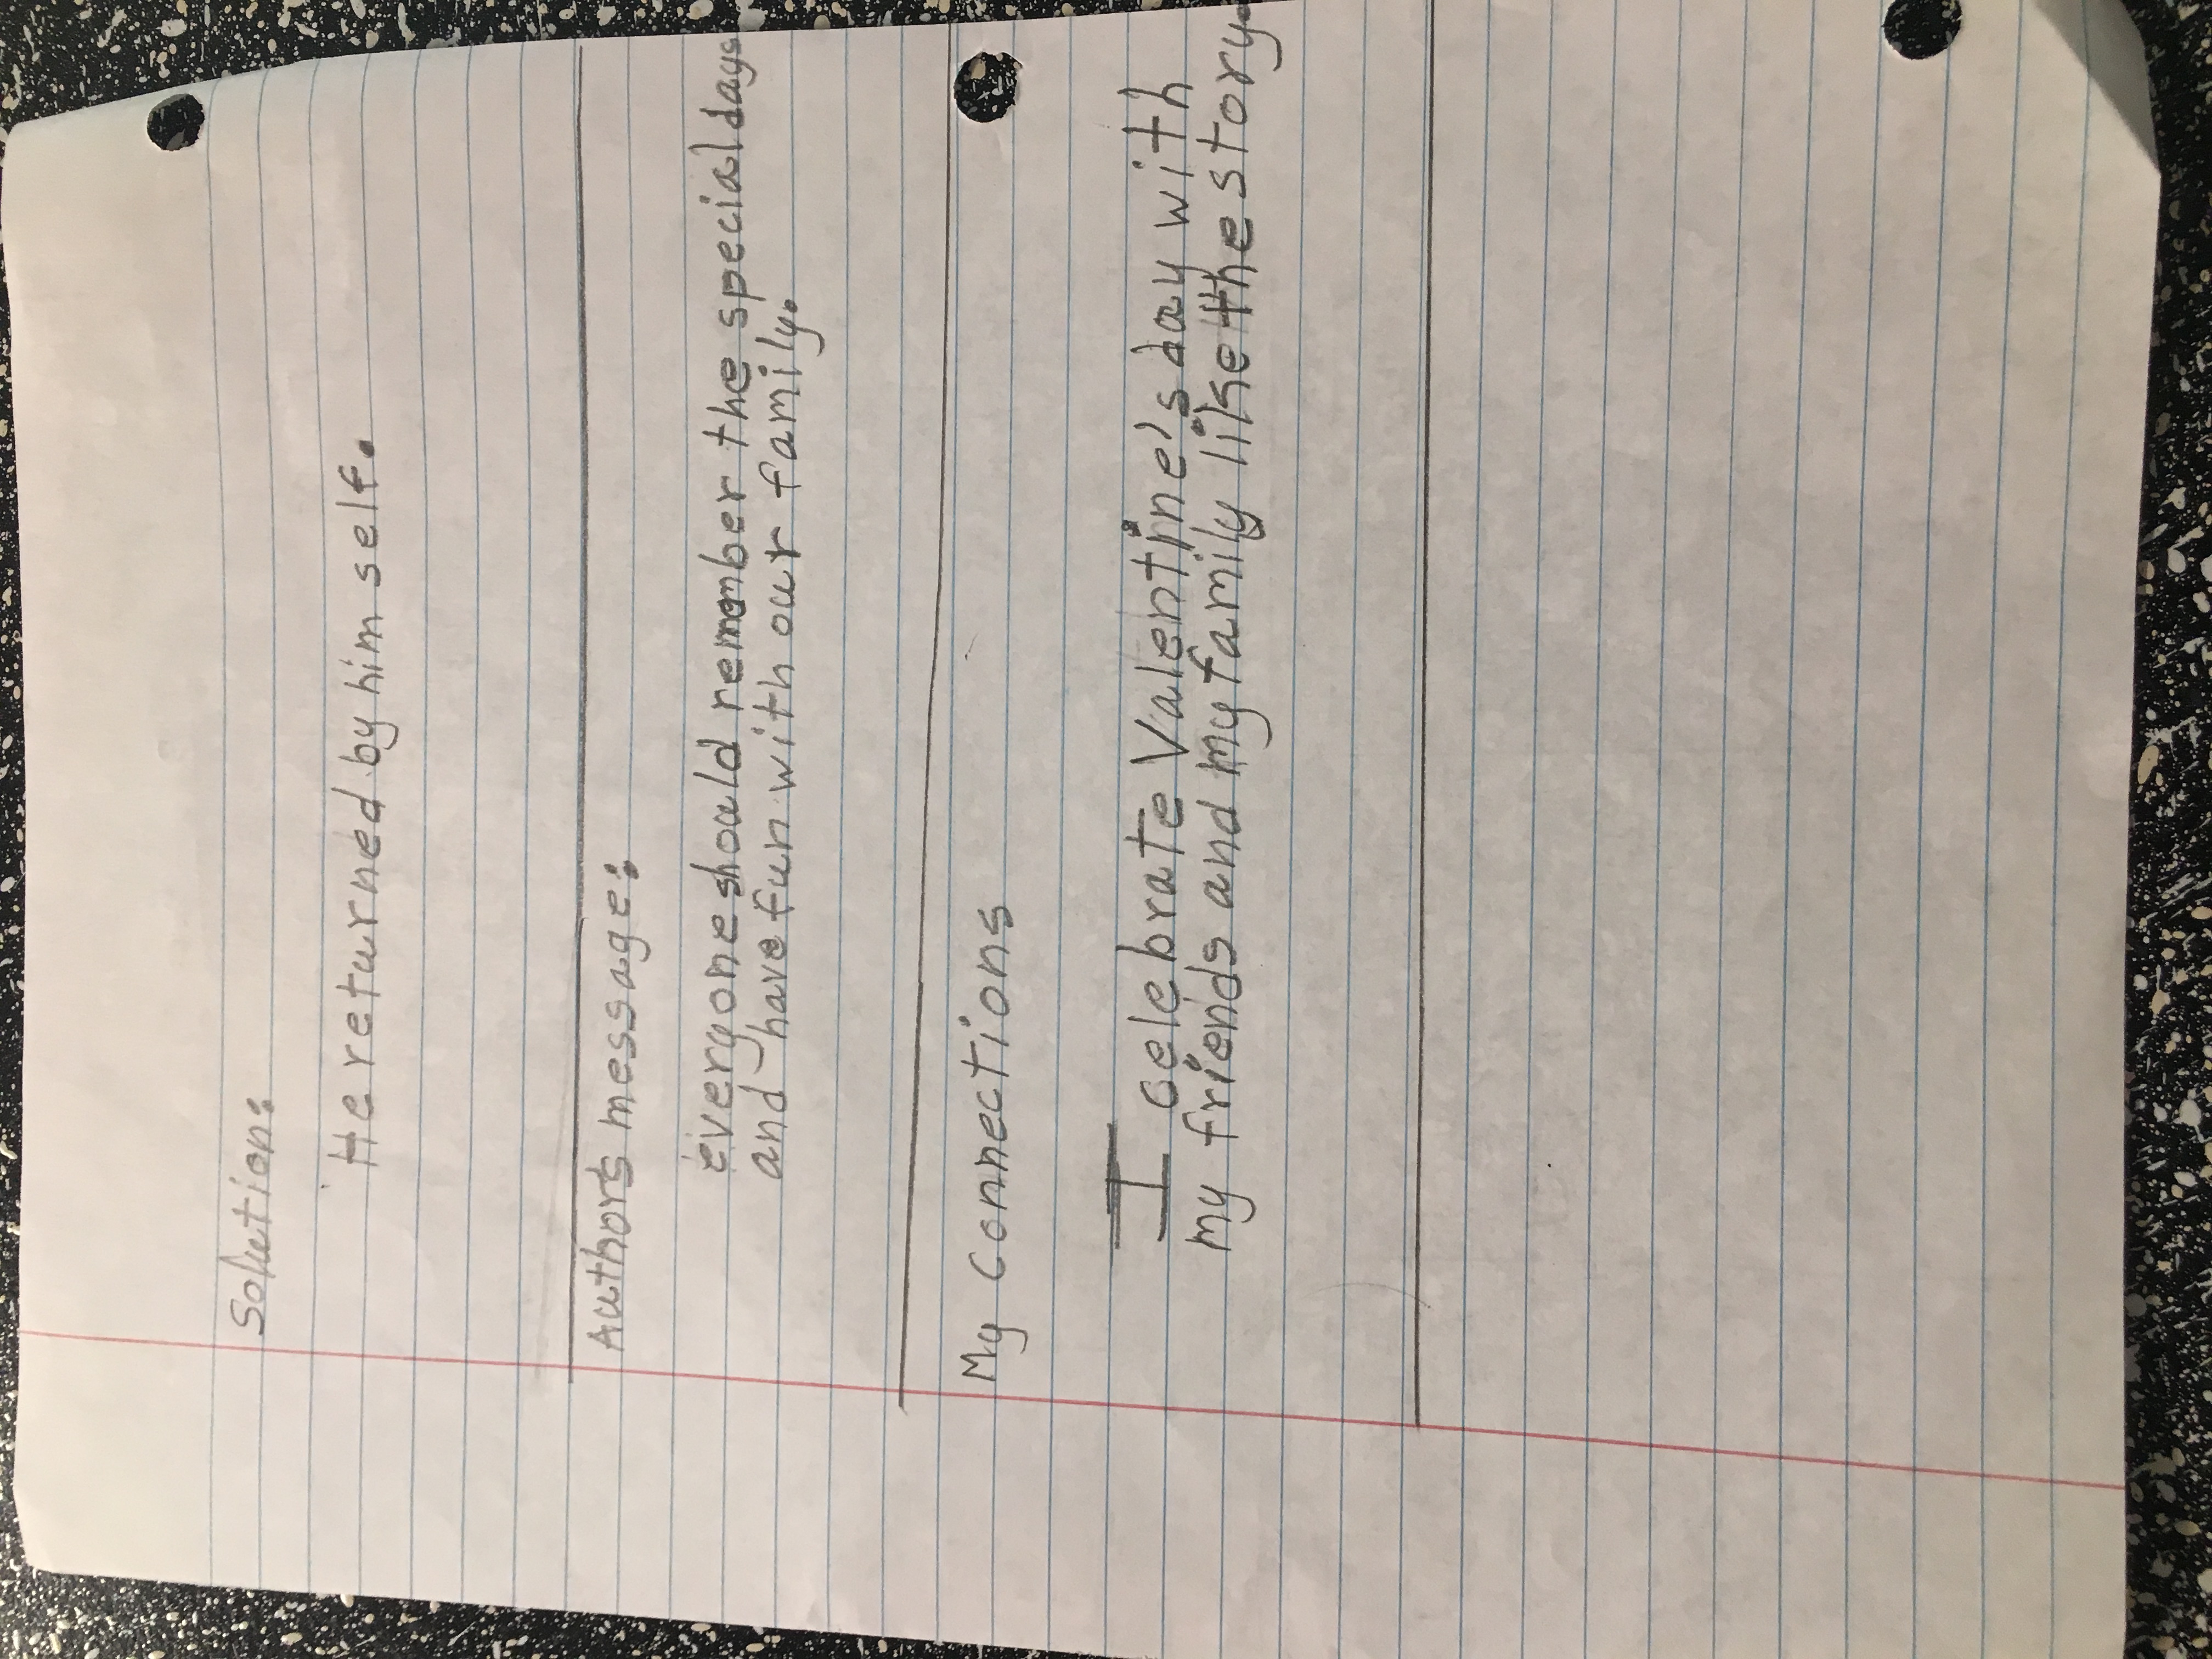 Solution:
He returned by him self.
Author's message:
everyone should remember the special days
and have fun with our family.
My Connections
I celebrate Valentine's day with
my friends and my family like the story.